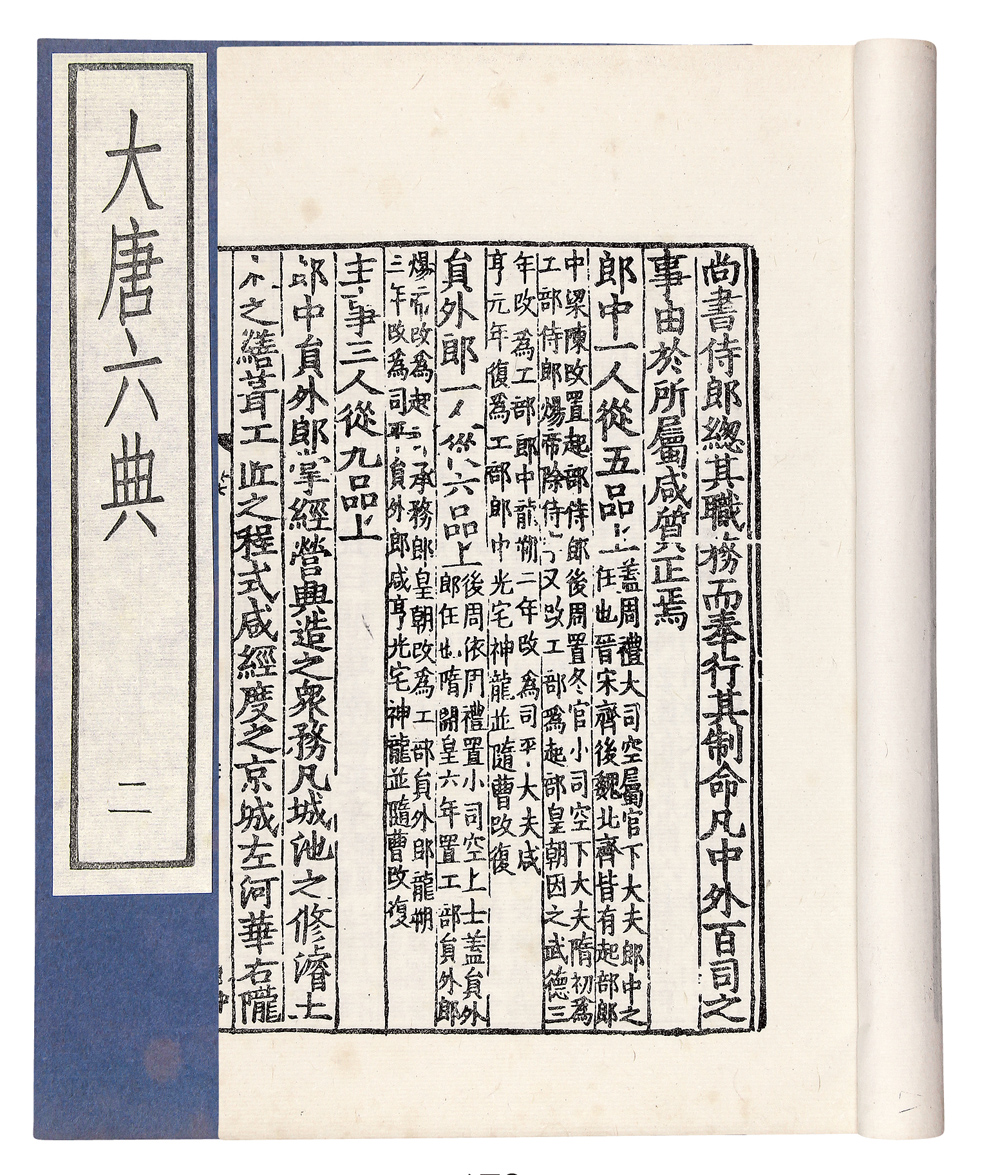 大唐六典
二
尚書侍郎總其職務而奉行其制命凡中外百司之
事由於所屬咸質正焉
郎中一人從五品上
蓋周禮大司空屬官下大夫郎中之
任也晉宋齊後魏北齊皆有起部郎
中梁陳改置起部侍郎後周置冬官小司空下大夫隋初爲
工部侍郎煬帝除侍又改工部爲起部皇朝因之武德三
年改爲工部郎中龍朔二年改爲司平大夫咸
亨元年復爲工部郎中光宅神龍並隨曹改復
員外郎一人從六品上
後周依周禮置小司空上士蓋員外
郎任也隋開皇六年置工部員外郎
煬帝改爲起部承務郎皇朝改爲工部員外郎龍朔
三年改爲司平員外郎咸亨光宅神龍並隨曹改復
主事三人從九品上
郎中員外郎掌經營興造之衆務凡城池之修濬土
木之繕葺工匠之程式咸經度之京城左河華右隴